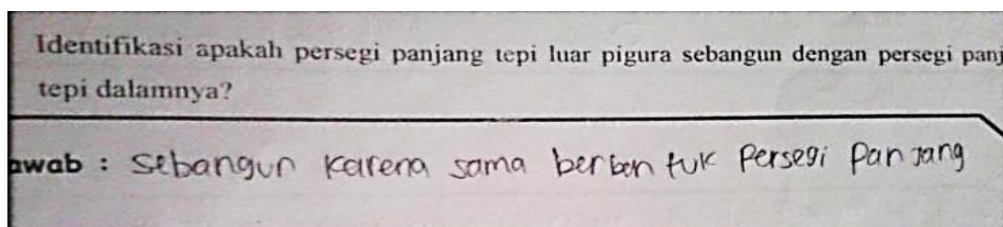 Identifikasi apakah persegi panjang tepi luar pigura sebangun dengan persegi panj
tepi dalamnya?
awab : Sebangun karena sama berbentuk Persegi Panjang